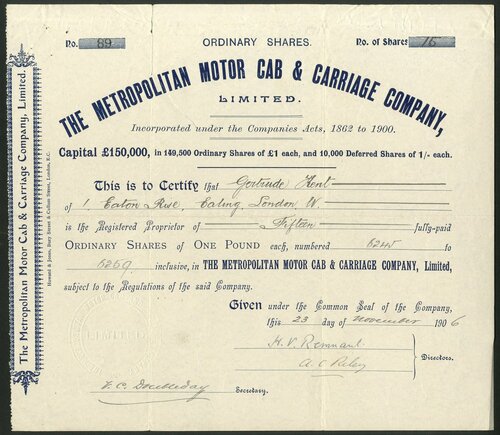 No. 89 ORDINARY SHARES. No. of Shares 15
THE METROPOLITAN MOTOR CAB & CARRIAGE COMPANY,
LIMITED.
Incorporated under the Companies Acts, 1862 to 1900.
Capital £150,000, in 149,500 Ordinary Shares of £1 each, and 10,000 Deferred Shares of 1/- each.
This is to Certify that Gertrude Hont
of 1, Eaton Rise, Ealing, London W.
is the Registered Proprietor of Fifteen fully-paid
ORDINARY SHARES OF ONE POUND each, numbered 5245 to
5259 inclusive, in THE METROPOLITAN MOTOR CAB & CARRIAGE COMPANY, Limited,
subject to the Regulations of the said Company.
Given under the Common Seal of the Company,
this 23 day of November 1906
H. V. Remnant
A. C. Riley
Directors.
F. C. Doubleday Secretary.
The Metropolitan Motor Cab & Carriage Company, Limited.
Howard & Jones, Bury Street & Cullum Street, London, E.C.